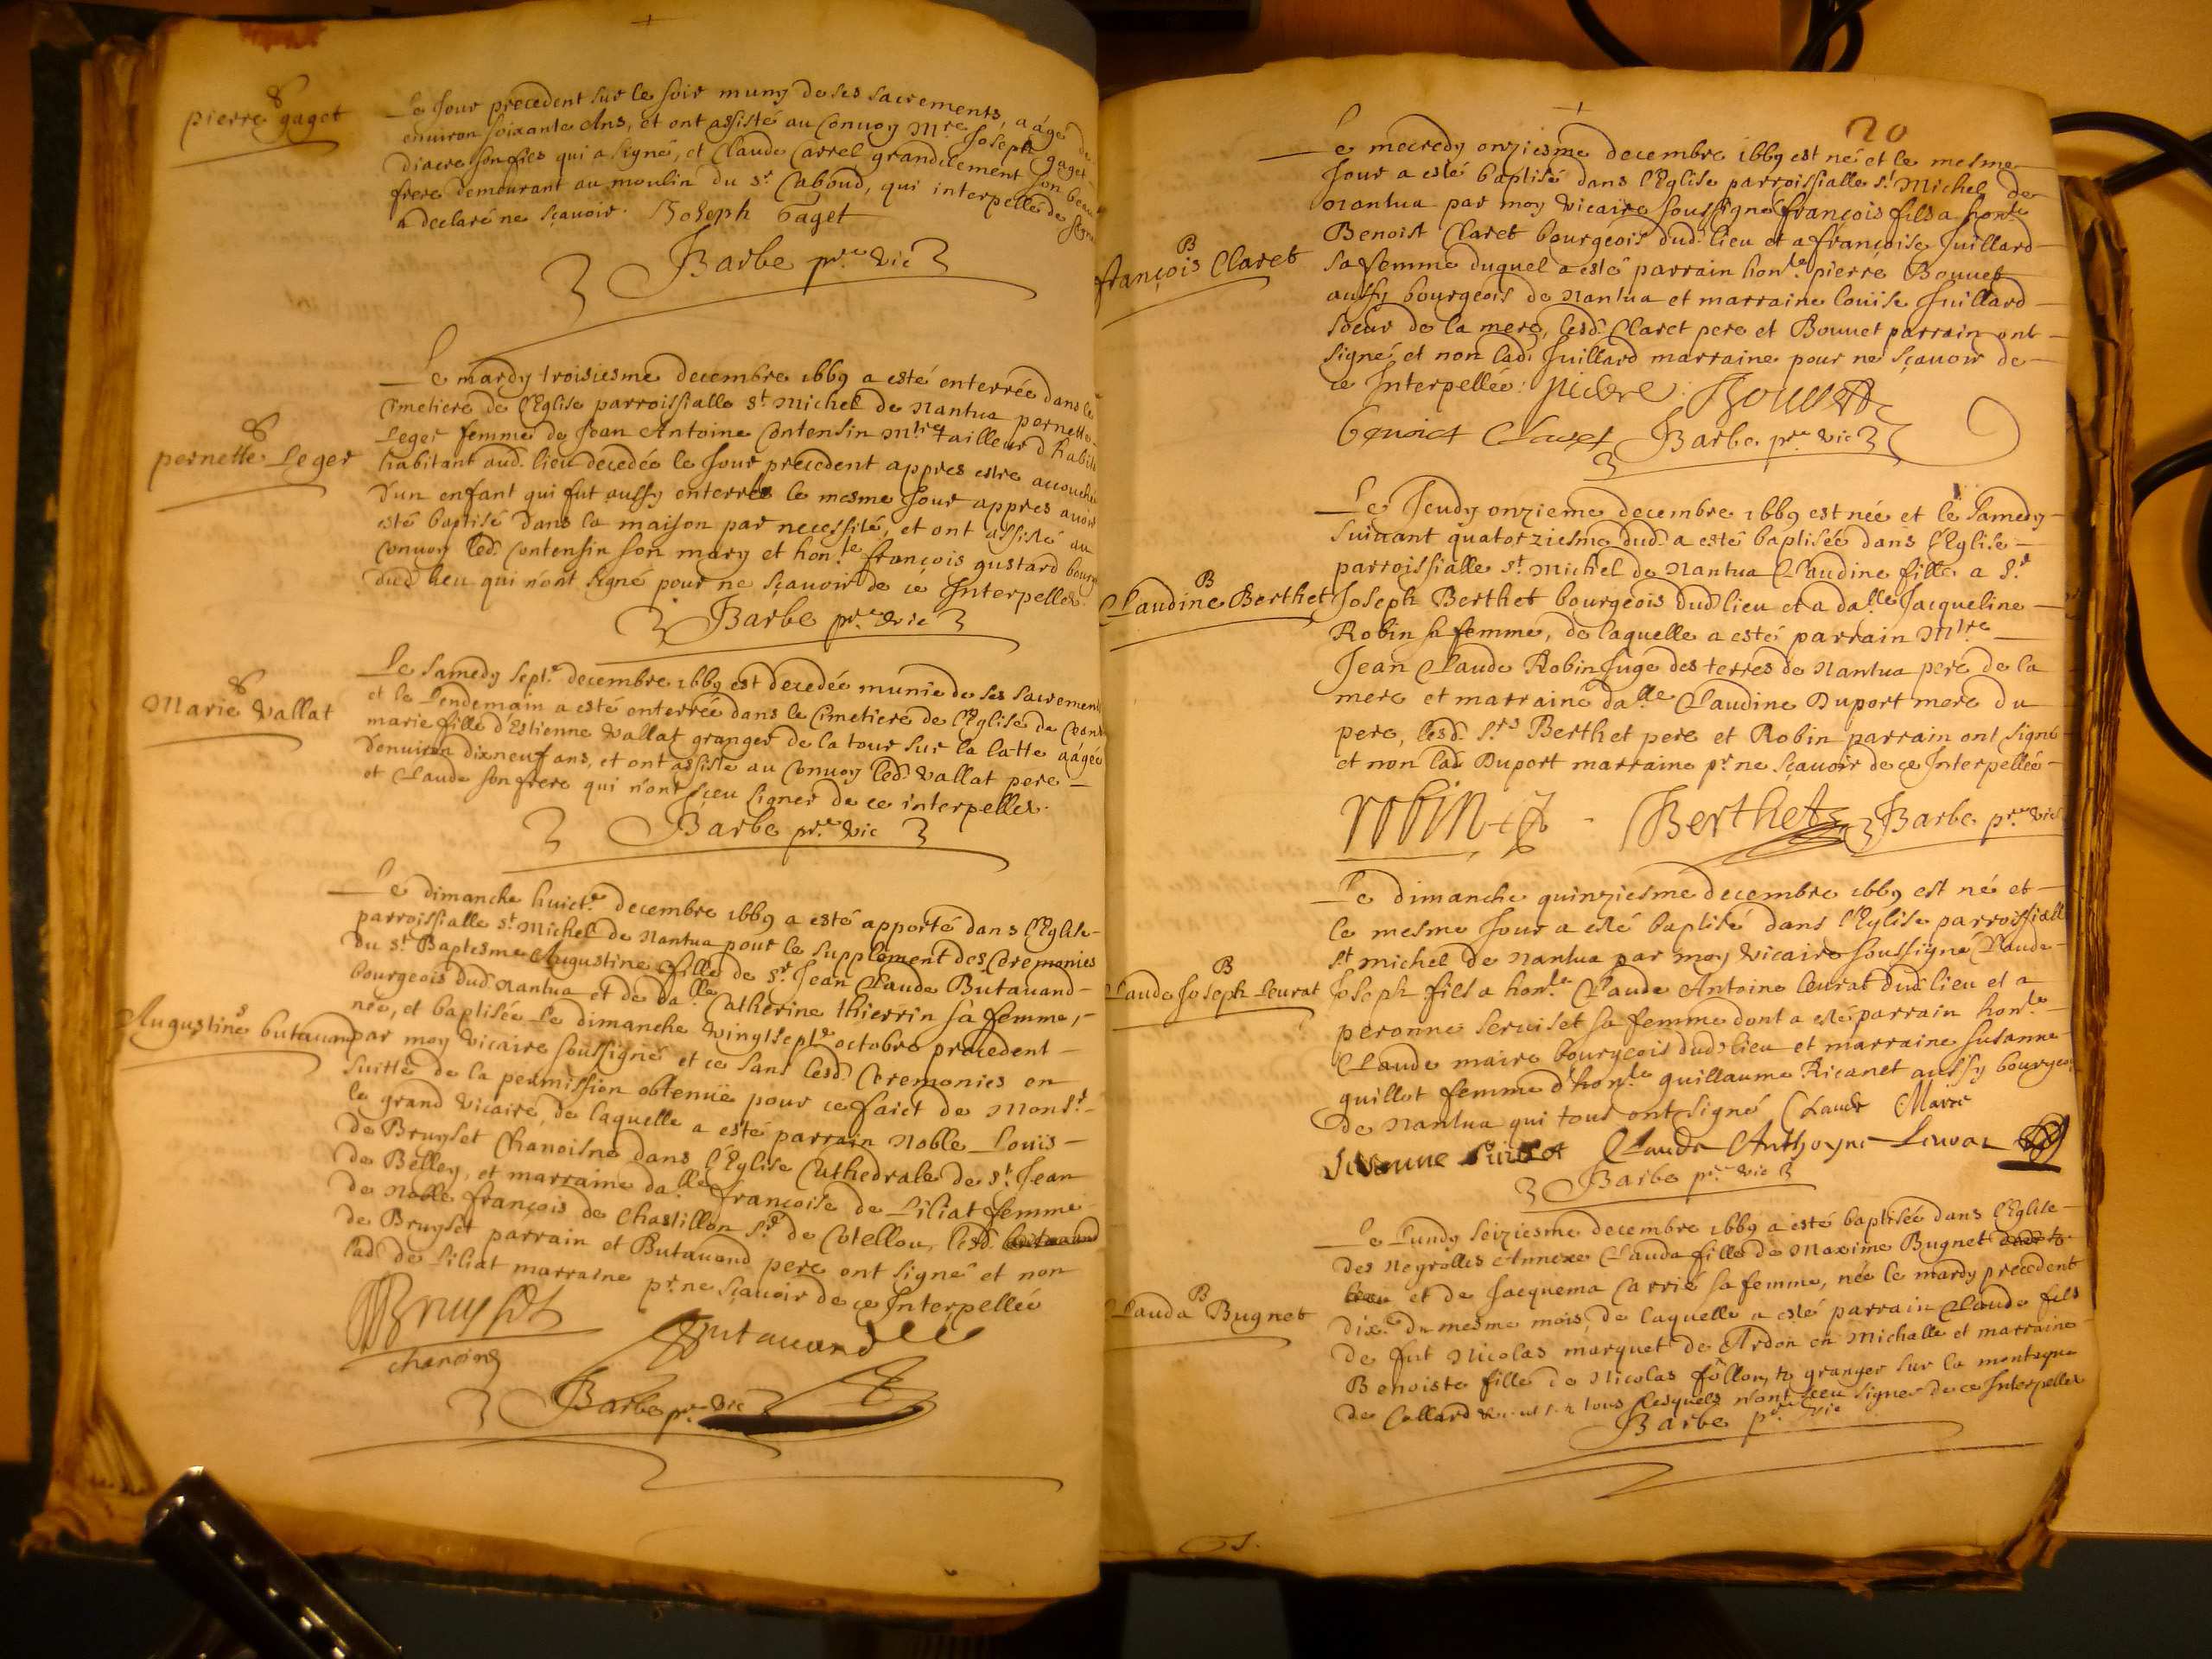 pierre gaget
Le Jour precedent sur le soir muny de ses sacrements, aagé de
environ soixante Ans, et ont assisté au Convoy Mre Joseph gaget
Diacre son fils qui a signé, et Claude Carrel grandclement son beau
frere demeurant au moulin du sr Caboud, qui interpellé de signe
a declaré ne sçavoir. Joseph Gaget
Barbe pre vic
pernette Leger
Le mardy troisiesme decembre 1669 a esté enterrée dans le
Cimetiere de l'Eglise parroissialle st Michel de Nantua pernette
Leger femme de Jean Antoine Contensin Mtre tailleur d'habits
habitant aud. lieu decedée le Jour precedent appres estre accouchée
d'un enfant qui fut aussy enterré le mesme Jour appres avoir
esté baptisé dans la maison par necessité, et ont assisté au
Convoy led. Contensin son mary et hon.le françois gustard bourg
dud lieu qui n'ont signé pour ne sçavoir de ce Interpelles
Barbe pre vic
Marie Vallat
Le Samedy sept.e decembre 1669 est decedée munie de ses sacrements
et le Lendemain a esté enterrée dans le Cimetiere de l'Eglise de
marie fille d'Estienne Vallat granger de la tour sur la latte aagée
d'environ dixneuf ans, et ont assisté au Convoy led. Vallat pere
et Claude son frere qui n'ont sceu signer de ce interpelles.
Barbe pre vic
Augustine butavand
Le dimanche huict.e decembre 1669 a esté apporté dans l'Eglise
parroissialle st Michel de Nantua pour le supplement des Ceremonies
du st Baptesme Augustine fille de sr Jean Claude Butavand
bourgeois dud Nantua et de da.lle Catherine thierrin sa femme,
née, et baptisée le dimanche vingtsept.e octobre precedent
par moy vicaire soussigné et ce sans lesd. Ceremonies en
suitte de la permission obtenuë pour ce faict de Monsr
le grand vicaire, de laquelle a esté parrain Noble Louis
de Bruyset Chanoisne dans l'Eglise Cathedrale de st Jean
de Belley, et marraine da.lle françoise de Liliat femme
de Noble françois de Chastillon sr de Cotellou, lesd.
de Bruyset parrain et Butavand pere ont signé et non
lad de Liliat marraine pr ne sçavoir de ce Interpellée
Bruyset
chanoine
Butavand
Barbe pre vic
20
françois Claret
B
Le mecredy onziesme decembre 1669 est né et le mesme
Jour a esté baptisé dans l'Eglise parroissialle st Michel de
Nantua par moy vicaire soussigné françois fils a honle
Benoist Claret bourgeois dud. lieu et a françoise Juillard
sa femme duquel a esté parrain hon.le pierre Bouuet
aussy bourgeois de Nantua et marraine louise Juillard
soeur de la mere, lesd. Claret pere et Bouuet parrain ont
signé et non lad. Juillard marraine pour ne sçavoir de
ce Interpellée: pierre Bouuet
Benoict Claret Barbe pre vic
B
Claudine Berthet
Le Jeudy onzieme decembre 1669 est née et le Samedy
suivant quatorziesme dud. a esté baptisée dans l'Eglise
parroissialle st Michel de Nantua Claudine fille a Sr
Joseph Berthet bourgeois dud lieu et a da.lle Jacqueline
Robin sa femme, de laquelle a esté parrain Mtre
Jean Claude Robin Juge des terres de Nantua pere de la
mere et marraine da.lle Claudine Duport mere du
pere, lesd. srs Berthet pere et Robin parrain ont signé
et non lad Duport marraine pr ne sçavoir de ce Interpellée
robin Berthet Barbe pre vic
B
Claude Joseph Leurat
Le dimanche quinziesme decembre 1669 est né et
le mesme Jour a esté baptisé dans l'Eglise parroissialle
st michel de nantua par moy vicaire soussigné Claude
Joseph fils a hon.le Claude Antoine leurat dud. lieu et a
peronne Seruiset sa femme dont a esté parrain hon.le
Claude maire bourgeois dud. lieu et marraine susanne
guillot femme d'hon.le guillaume Ricanet aussy bourgeois
de Nantua qui tous ont signé Claude Maire
Susanne Guillot Claude Anthoyne Leurat
Barbe pre vic
B
Clauda Bugnet
Le Lundy seiziesme decembre 1669 a esté baptisée dans l'Eglise
des Neyrolles Annexe Clauda fille de Maxime Bugnet
et de Jacquema Carrié sa femme, née le mardy precedent
dix.e du mesme mois, de laquelle a esté parrain Claude fils
de fut Nicolas marquet de Ardon en Michalle et marraine
Benoiste fille de Nicolas granger sur la montagne
de Collard tous lesquels n'ont sceu signer de ce Interpelles
Barbe pre vic